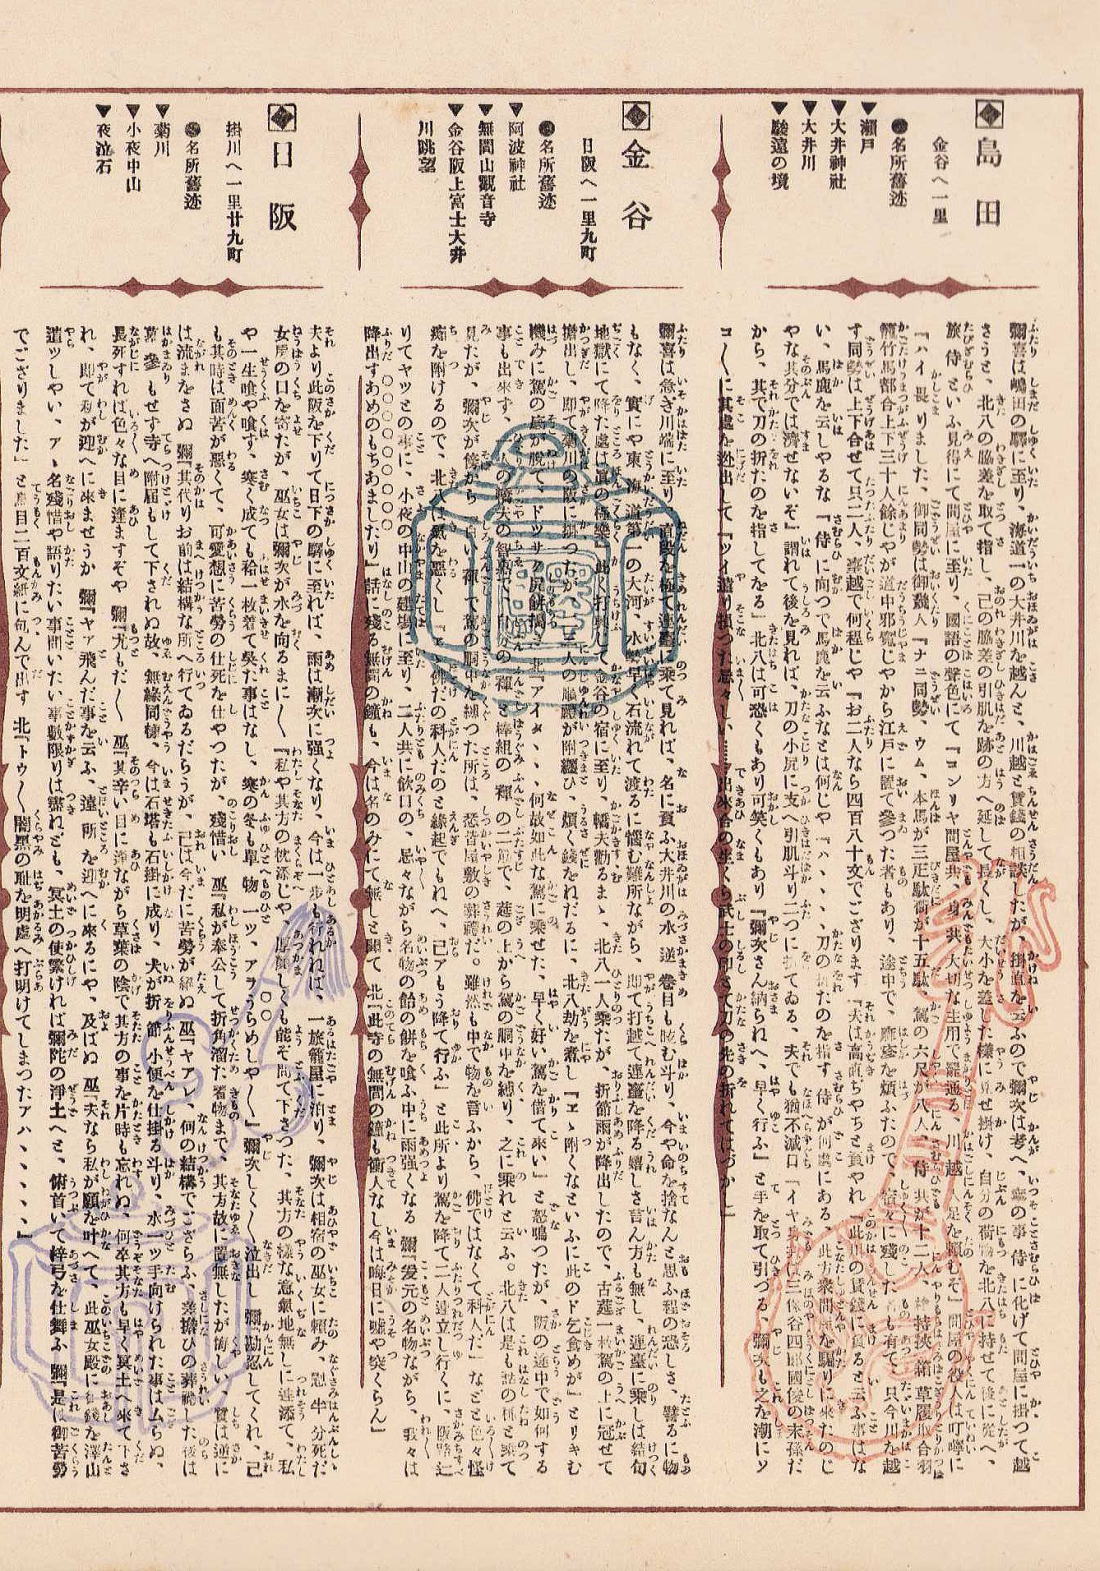 島田
金谷へ一里
●名所舊迹
▼瀬戸
▼大井神社
▼大井川
▼駿遠の境
彌喜は嶋田の驛に至り、海道一の大井川を越んと、川越と賃錢の相談したが、掛直を云ふので彌次は考へ、寧の事侍に化けて問屋に掛つて越
さうと、北八の脇差を取て指し、己の脇差の引肌を跡の方へ延して長くし、大小を差した樣に見せ掛け、自分の荷物を北八に持せて後に從へ、
旅侍といふ見得にて問屋に至り、國語の聲色にて『コンリヤ問屋共、身共大切な主用で罷通る 川越人足を頼むぞ』問屋の役人は叮嚀に
『ハイ畏りました、御同勢は御幾人『ナニ同勢、ウム、本馬が三疋駄荷が十五駄、駕の六尺が八人、侍共が十二人、鎗持挾箱草履取合羽
籠竹馬都合上下三十人餘じやが道中邪寬じやから江戸に置て參つた
す同勢は上下合せて只二人、臺越で何程じや『お二人なら四百八十文でござります『夫は高直ぢやちと負やれ『此川の賃錢に負ると云ふ事はな
い、馬鹿を云しやるな『侍に向つて馬鹿を云ふなとは何じや『ハヽヽヽ
やな其分では濟せないぞ』謂れて後を見れば、刀の小尻に支へ引肌斗り二つに
から、其で刀の折たのを指してゐる』北八は可恐くもあり可笑くもあり『彌次さん納られへ、早く行ふ』と手を取て引づる、彌次も之を潮にソ
コ〳〵に其處を迯出して『ツイ遣り損つた忌々しい
金谷
日阪へ一里九町
●名所舊迹
▼阿波神社
▼無間山觀音寺
▼金谷阪上富士大井
川眺望
彌喜は急ぎ川端に至り、直段を極て連臺に乘て見れば、名に負ふ大井川の水逆卷目も眩む斗り、今や命を捨なんと思ふ程の恐しさ、譬るに物
もなく、實にや東海道第一の大河、水勢早く石流れて渡るに惱む難所ながら、即て打越て連臺を降る嬉しさ言ん方も無し、連臺に乘しは結句
地獄にて降た處は眞の極樂、此く打興じ金谷の宿に至り、轎夫勸るまゝ、北八一人乘たが、折節雨が降出したので、古茣一枚駕の上に冠せて
擔出し、即て菊川の阪に掛つたが、三人の順禮が附纒ひ、煩く錢をねだるに、北八劫を煮し『ヱヽ附くなといふに此のド乞食めが』とリキむ
機みに駕の底が脱て、ドツサリ尻餅搗き 北『アイタヽヽ、何故如此な駕に乘せた、早く好い駕を借て來い』と怒鳴つたが、阪の途中で如何する
事も出來ず、
見たが、彌次が傍から
癪を附けるので、北八は氣を惡くし『
りてヤツとの事に、小夜の中山の建場に至り、二人共に飮口の、忌々ながら名物の飴の餅を喰ふ中に雨强くなる 彌『爰元の名物ながら、我々は
降出すあめのもちあましたり』話に殘る無間の鐘も、今は名のみにて無しと聞て、北『此寺の無間の鐘も衝人なし今は晦日に嘘や突くらん』
日阪
掛川へ一里廿九町
●名所舊迹
▼菊川
▼小夜中山
▼夜泣石
夫より此阪を下りて日下の驛に至れば、雨は漸次に强くなり、今は一步も行れねば、一旅籠屋に泊り、彌次は相宿の巫女に頼み、
女房の口を寄たが、巫女は彌次が水を向るまに〳〵『私や其方の枕添じや、厚顏しくも能ぞ問て下さつた、其方の樣な意氣地無しに連添て、私
や一生喰や喰ず、寒く成ても袷一枚着て呉た事はなし、寒の冬も單物一ツ、アヽうらめしや〳〵』彌次しく〳〵泣出し 彌『勘忍してくれ、己
も其時は面苦が惡くて、可愛想に苦勞の仕死を仕やつたが、殘惜い 巫『私が奉公して折角溜た着物まで、其方故に置無したが悔しい、質は逆に
は流まをさぬ 彌『其代りお前は結構な所へ行てゐるだらうが、己は今だに苦勞が絕ぬ 巫『ヤアレ、何の結構でござらふ、差擔ひの葬禮した後は
墓參もせず寺へ附屆もして下されぬ故、無緣同樣、今は石塔も石掛に成り、犬が折節小便を仕掛る斗り、水一ツ手向けられた事はムらぬ、
長死すれば色々な目に逢ますぞや 彌『尤もだ〳〵 巫『其辛い目に逢ながら草葉の陰で其方の事を片時も忘れぬ、何卒其方も早く冥土へ來て下さ
れ、即て私が迎へに來ませうか 彌『ヤア飛んだ事を云ふ、遠所を迎へに來るにや、及ばぬ 巫『夫なら私が願を叶へて、此巫女殿に錢を澤山
遣ツしやい、アヽ名殘惜や語りたい事問いたい事數限りは盡ねども、冥土の使繁ければ彌陀の淨土へと、俯首いて梓弓を仕舞ふ 彌『是は御苦勞
でござりました』と鳥目二百文紙に包んで出す 北『トウ〳〵闇黑の耻を明處へ打明けてしまつたアハヽヽヽヽ』